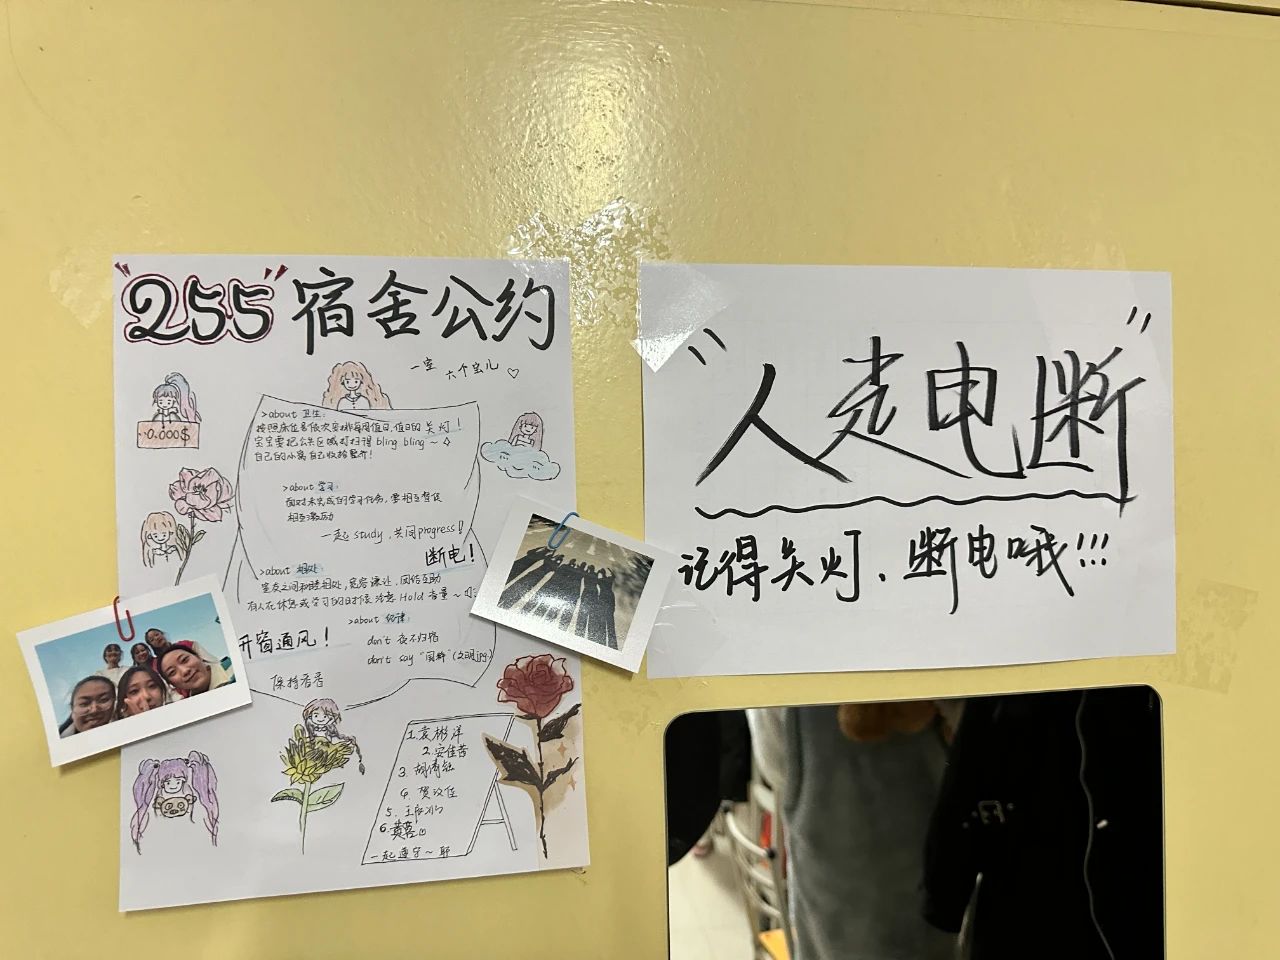 "255"宿舍公约
一室
六个宝儿♡
-0.000$
>about 卫生:
按照床位号依次安排每周值日,值日的
关灯!
宝宝要把公共区域打扫得 bling bling ~
自己的小窝自己收拾整齐!
>about 学习:
面对未完成的学习任务,要相互督促
相互激励
一起 study,共同progress!
断电!
>about 相处:
室友之间和睦相处,宽容谦让,团结互助
有人在休息或学习的时候注意 Hold 音量 ~
>about 纪律:
开窗通风!
don't 夜不归宿
don't say "国粹"(文明.jpg)
保持香香
1.袁彬洋
2.安佳茜
3.
4.贺汶佳
5.
6.黄蓉
一起遵守~耶
"人走电断"
记得关灯、断电哦!!!